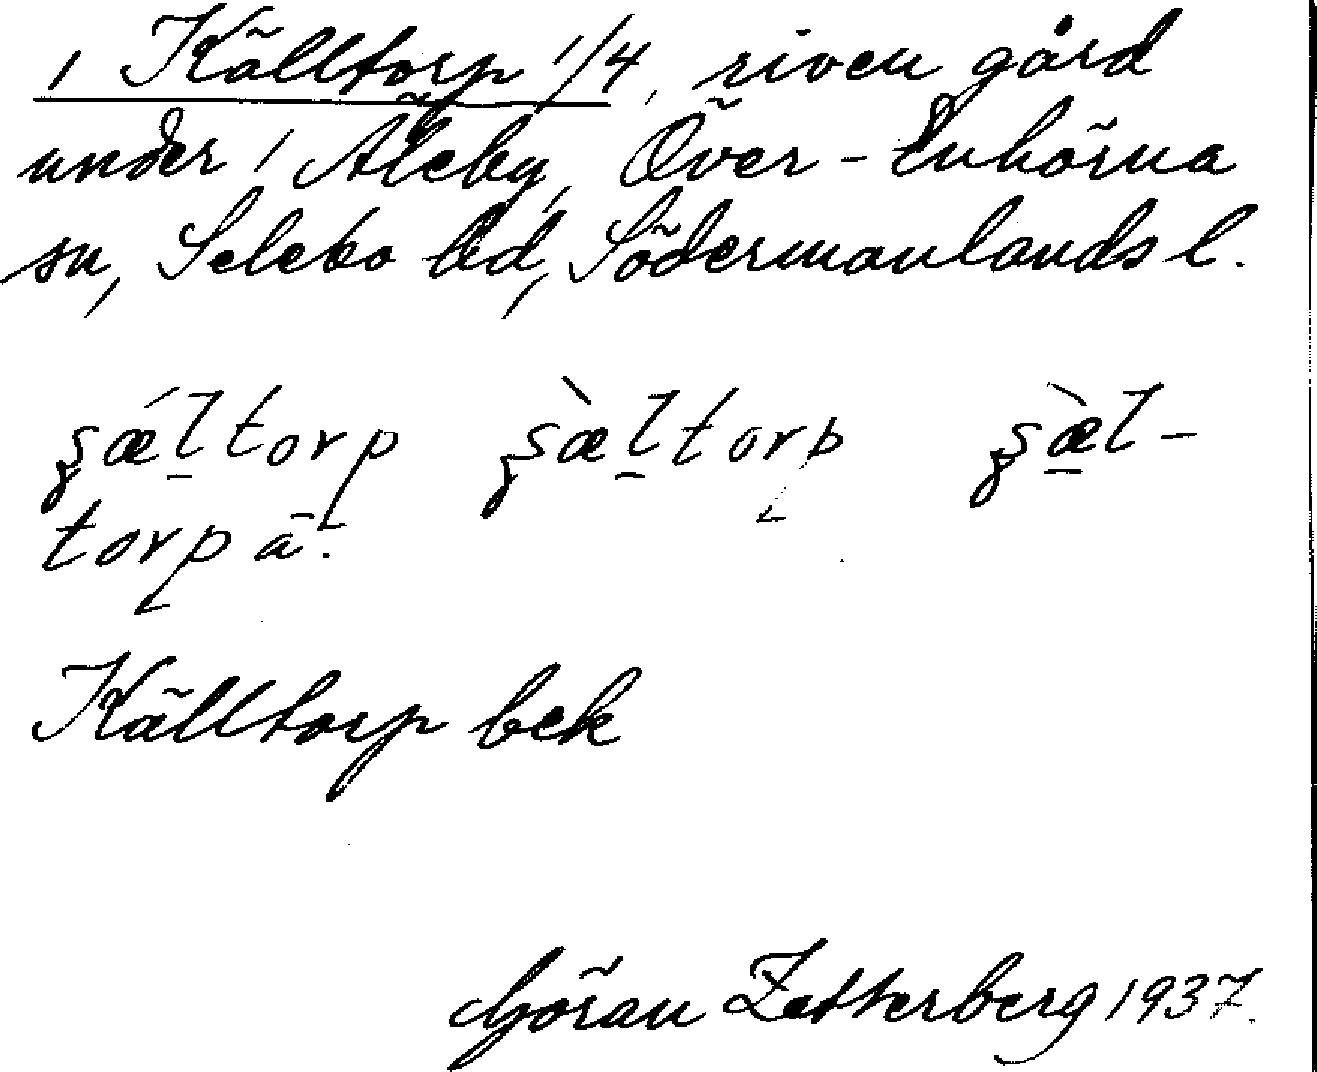 1 Källtorp 1/4, riven gård
under 1 Åleby, Över-Enhörna
sn, Selebo hd, Södermanlands l.
ʂǽl̠torp ʂæ̀l̠torp ʂæ̠̀l-
torp ā.
Källtorp bek
Göran Zetterberg 1937.